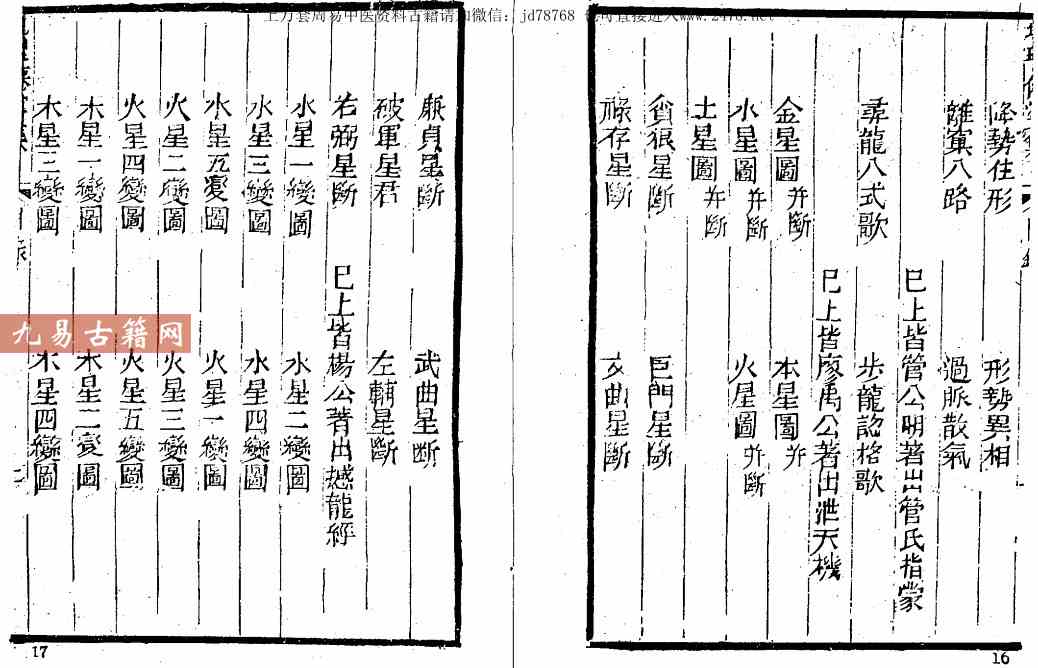 降勢住形　形勢異相
離窠八路　過脈散氣
已上皆管公明著出管氏指蒙
尋龍八式歌　步龍認格歌
已上皆廖禹公著出泄天機
金星圖并斷　木星圖并
水星圖并斷　火星圖并斷
土星圖并斷
貪狼星斷　巨門星斷
祿存星斷　文曲星斷
16
廉貞星斷　武曲星断
破軍星君　左輔星斷
右弼星斷
已上皆楊公著出撼龍經
水星一變圖　水星二變圖
水星三變圖　水星四變圖
水星五變圖　火星一變圖
火星二變圖　火星三變圖
火星四變圖　火星五變圖
木星一變圖　木星二變圖
木星三變圖　木星四變圖
17
九易古籍网